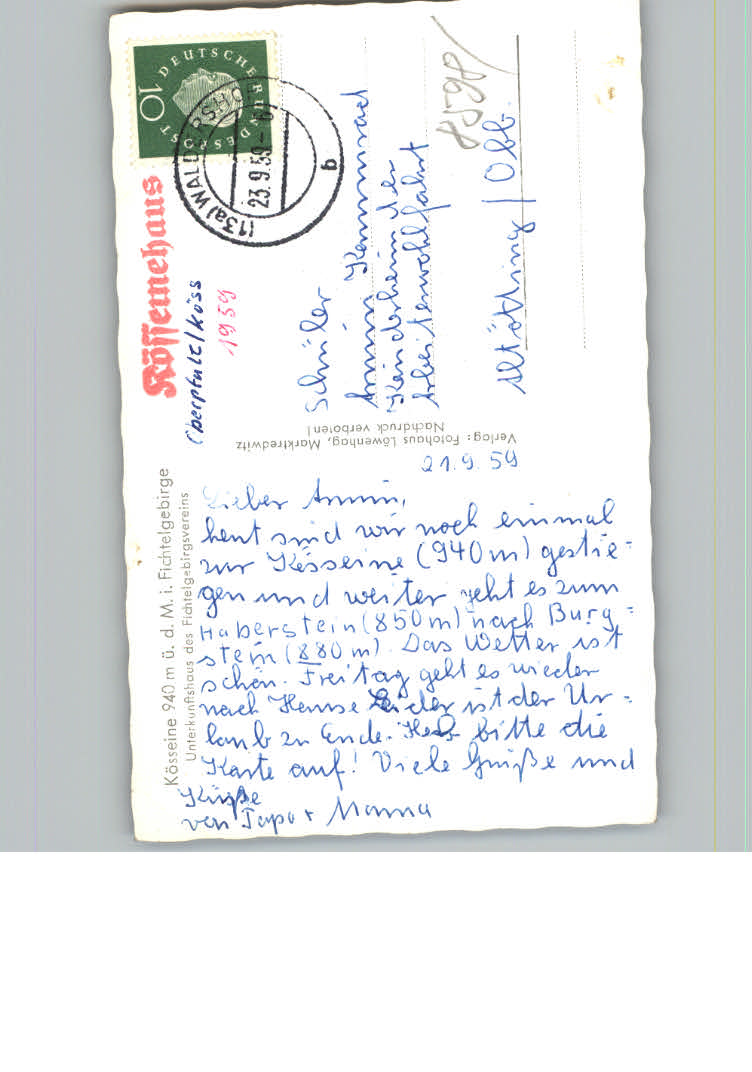 Kösseine 940 m ü. d. M. i. Fichtelgebirge
Unterkunftshaus des Fichtelgebirgsvereins
21.9.59
Lieber Armin,
heut sind wir noch einmal
zur Kösseine (940m) gestie-
gen und weiter geht es zum
Haberstein (850m) nach Burg-
stein (880m). Das Wetter ist
schön. Freitag geht es wieder
nach Hause. Leider ist der Ur-
laub zu Ende. Heb bitte die
Karte auf! Viele Grüße und
Küße
von Papa + Mama
Verlag: Fotohaus Löwenhag, Marktredwitz
Nachdruck verboten!
Kösseinehaus
Oberpfalz/köss
1959
DEUTSCHE BUNDESPOST
10
(13a) WALDERSHOF
23.9.59
b
Schüler
Armin
Kinderheim der
Arbeiterwohlfahrt
Altötting / Obb.